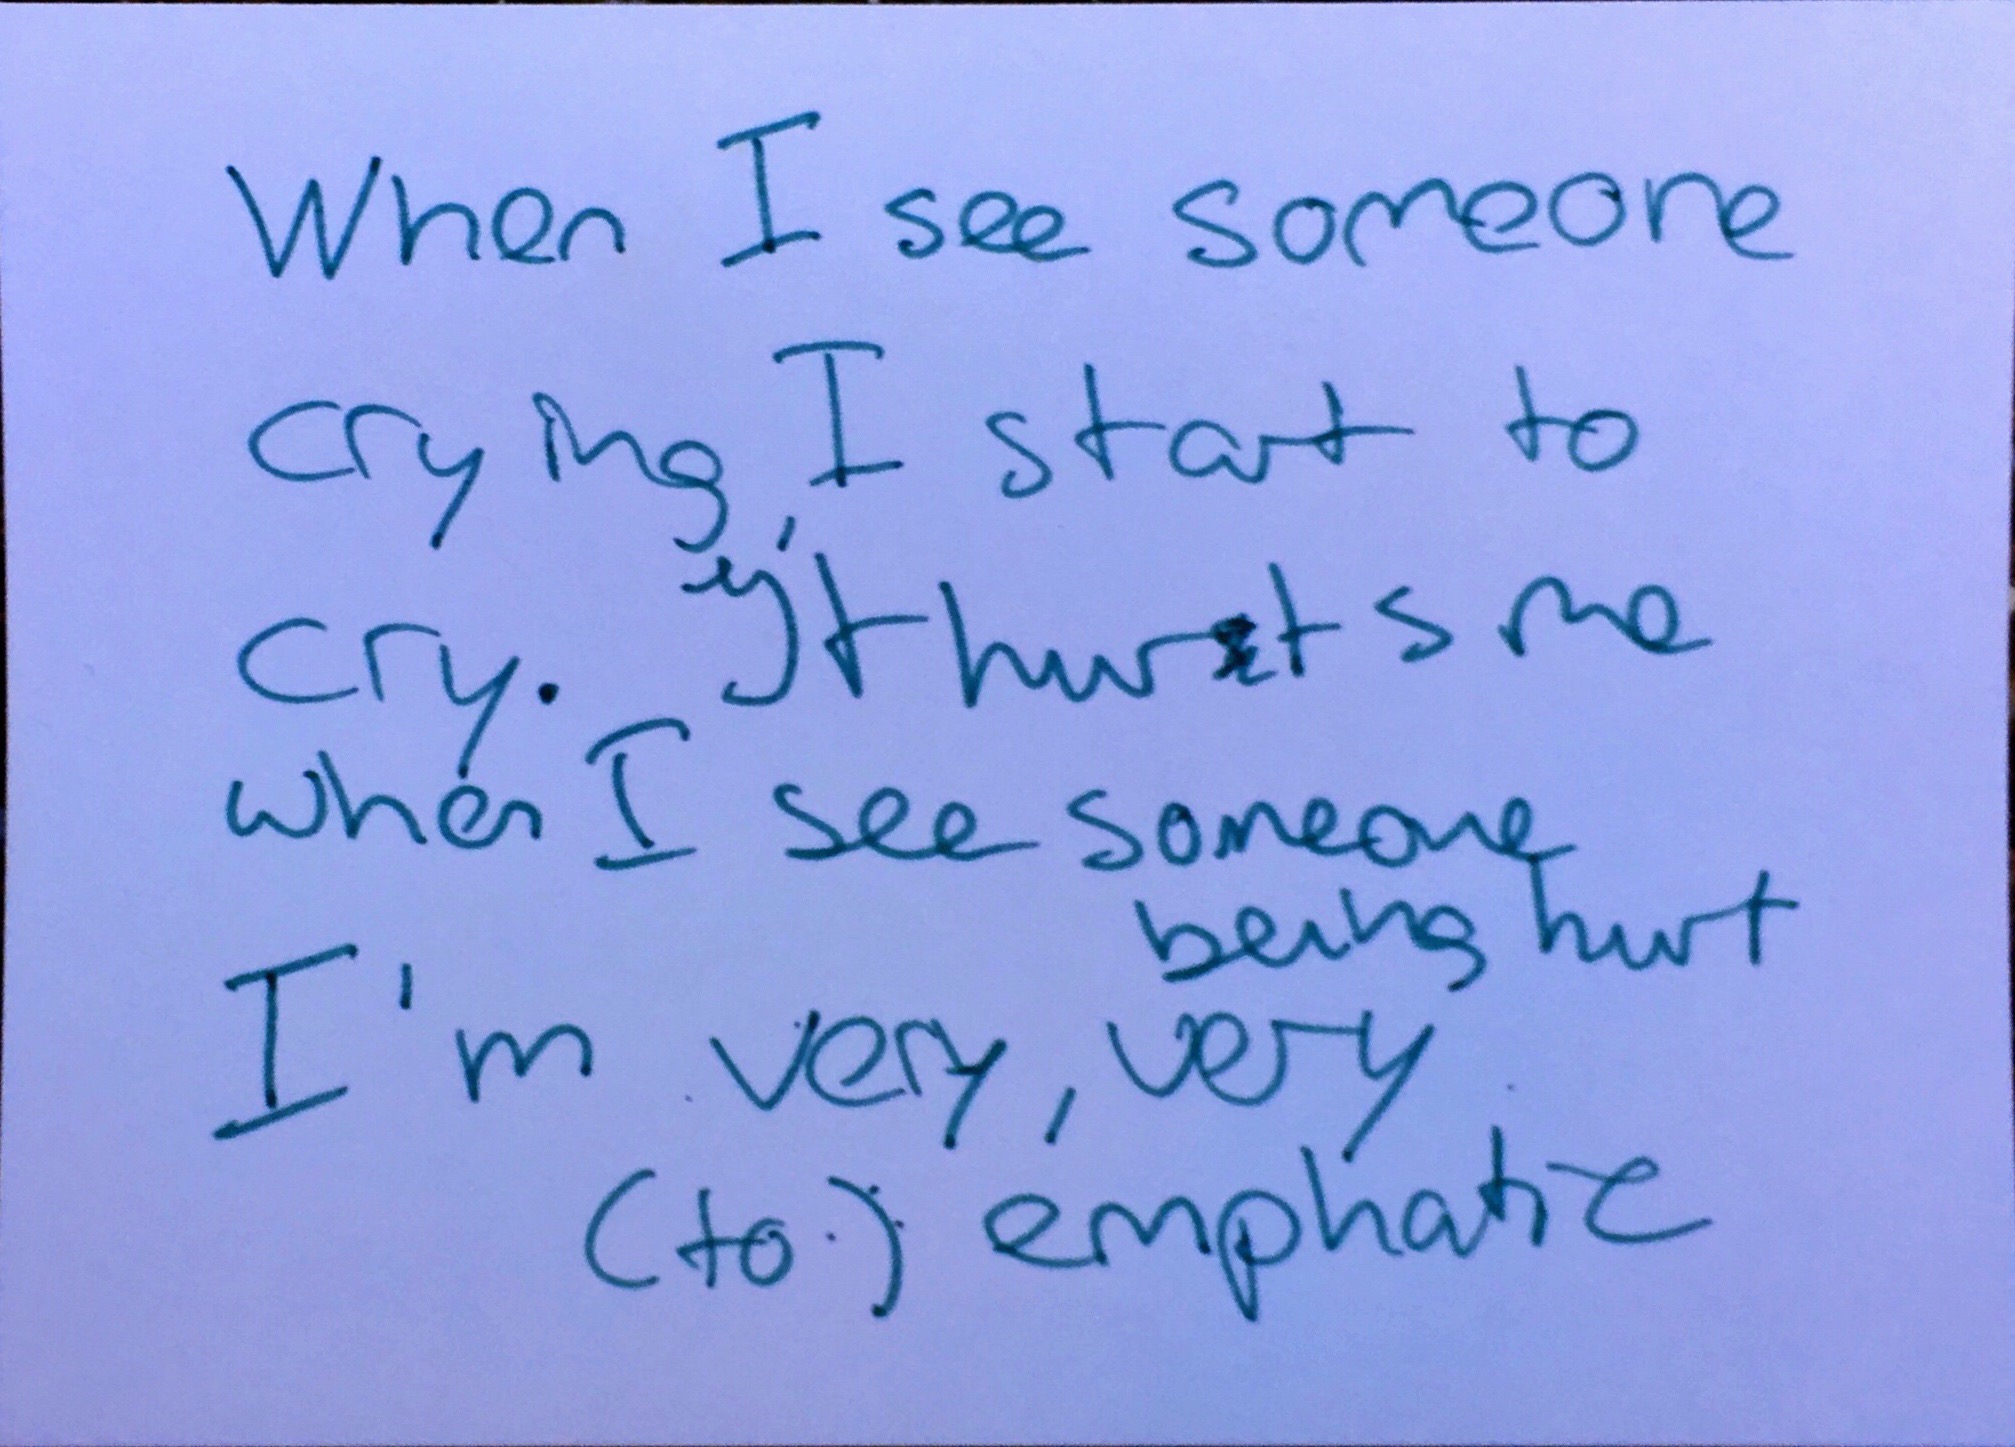 When I see someone
crying, I start to
cry. It hurts me
when I see someone
being hurt
I'm very, very
(to) emphatic